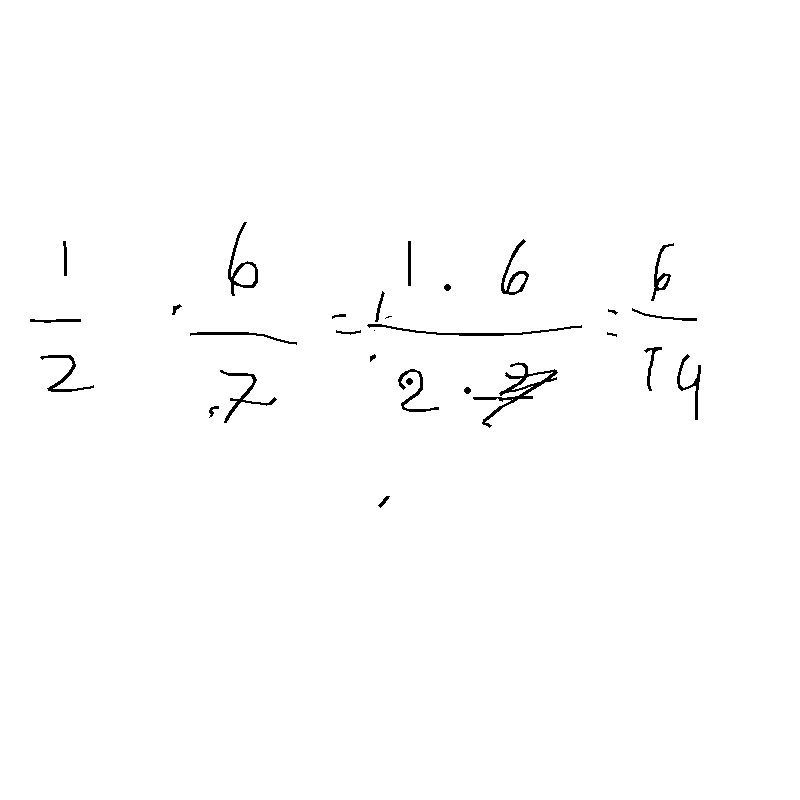 1/2 · 6/7 = 1 · 6 / 2 · 7 = 6/14